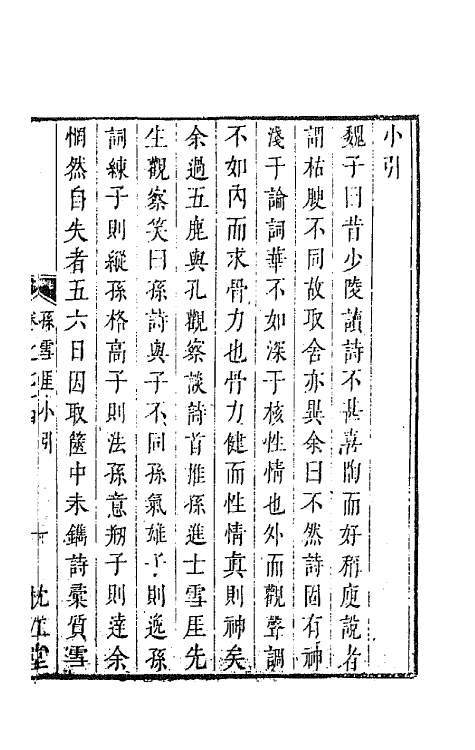 小引
魏子曰昔少陵讀詩不甚喜陶而好稱庾說者
謂枯腴不同故取舍亦異余曰不然詩固有神
淺于論詞華不如深于核性情也外而觀聲調
不如內而求骨力也骨力健而性情真則神矣
余過五鹿與孔觀察談詩首推孫進士雪厓先
生觀察笑曰孫詩與子不同孫氣雄子則逸孫
詞練子則縱孫格高子則法孫意刱子則達余
惘然自失者五六日因取篋中未鐫詩稾質雪
孫雪厓小引
卷之
枕江堂